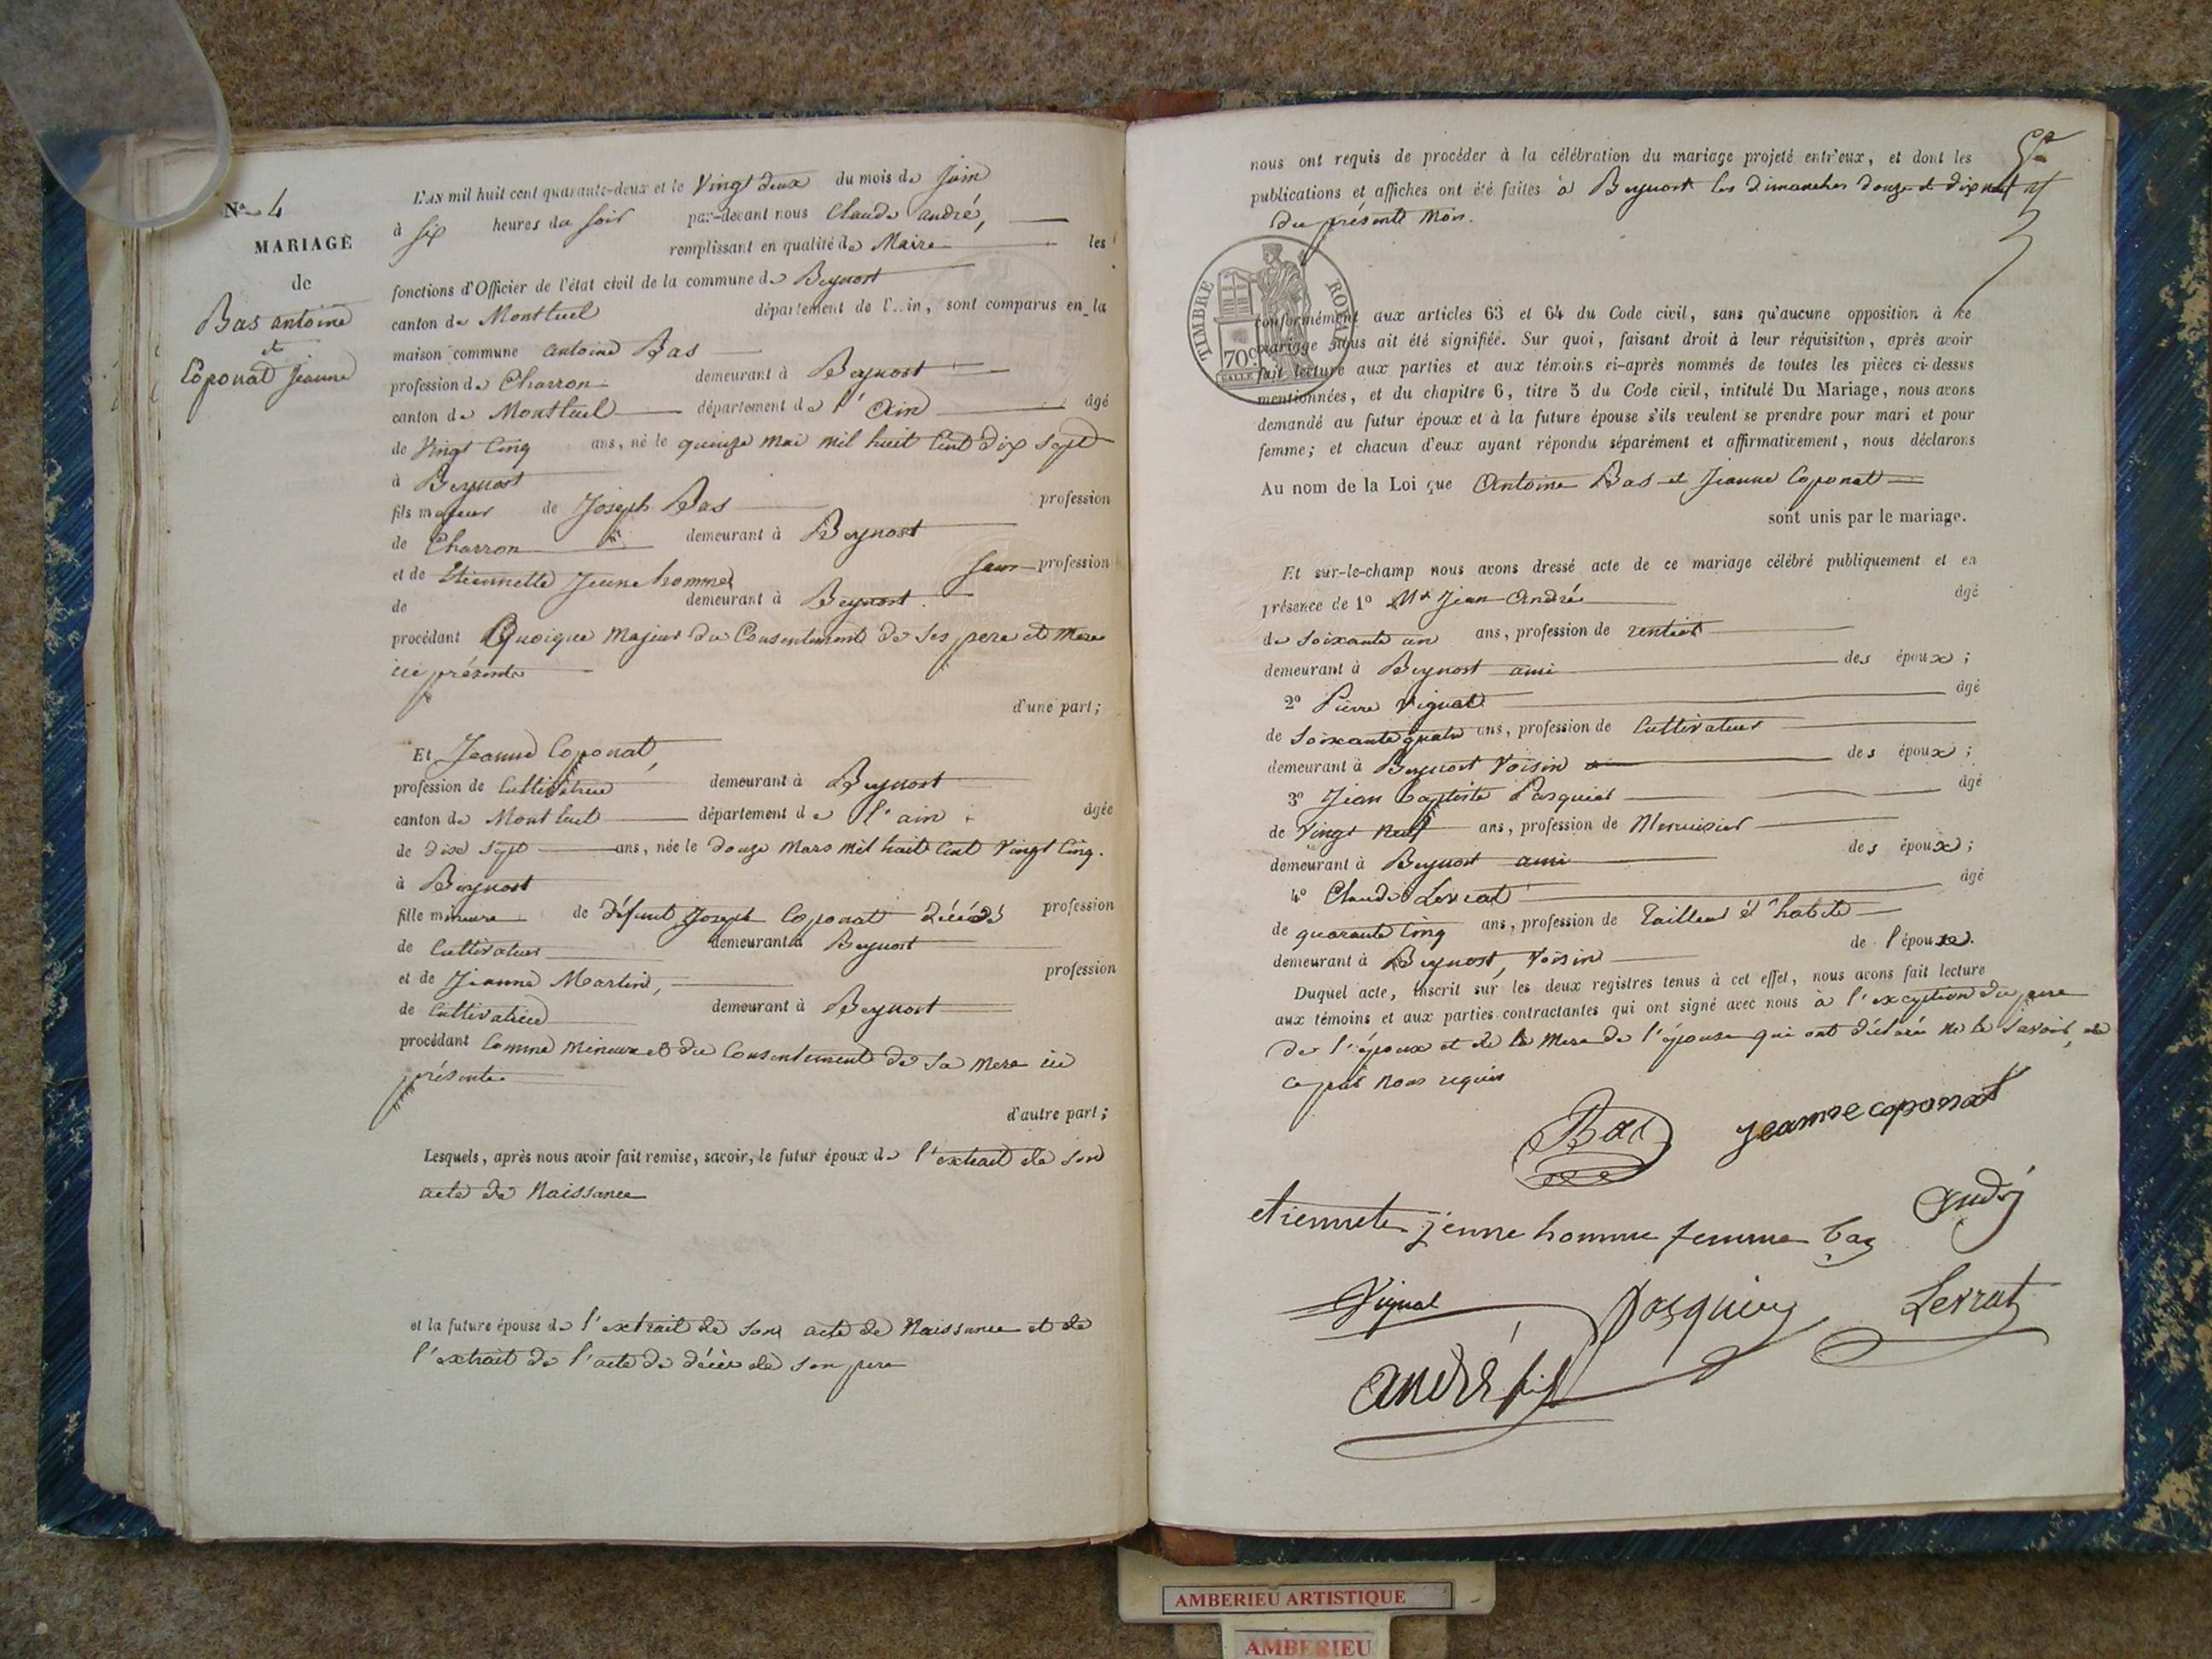 N° 4
MARIAGE
de
Bas antoine
et
Coponat Jeanne
L'AN mil huit cent quarante-deux et le Vingt deux du mois de Juin
à six heures du soir par-devant nous Claude andré,
remplissant en qualité de Maire les
fonctions d'Officier de l'état civil de la commune de Beynost
canton de Montluel département de l'..in, sont comparus en la
maison commune antoine Bas
profession de Charron demeurant à Beynost
canton de Montluel département de l'Ain âgé
de Vingt Cinq ans, né le quinze mai mil huit Cent dix sept
à Beynost
fils majeur de Joseph Bas profession
de Charron demeurant à Beynost
et de Etiennette Jeune homme sans profession
de demeurant à Beynost.
procédant Quoique majeur du Consentement de ses pere et mere
ici présents
d'une part;
Et Jeanne Coponat,
profession de Cultivatrice demeurant à Beynost
canton de Montluel département de l'ain âgée
de dix sept ans, née le douze Mars mil huit Cent Vingt Cinq.
à Beynost
fille mineure de défunt Joseph Coponat décédé profession
de Cultivateur demeurant à Beynost
et de Jeanne Martin, profession
de Cultivatrice demeurant à Beynost
procédant Comme mineure et du Consentement de sa mere ici
présente
d'autre part;
Lesquels, après nous avoir fait remise, savoir, le futur époux de l'extrait de son
acte de Naissance
et la future épouse de l'extrait de son acte de Naissance et de
l'extrait de l'acte de décès de son pere
nous ont requis de procéder à la célébration du mariage projeté entr'eux, et dont les
publications et affiches ont été faites à Beynost les dimanches douze et dix neuf
du présente mois.
TIMBRE ROYAL
70 c
conformément aux articles 63 et 64 du Code civil, sans qu'aucune opposition à ce
mariage nous ait été signifiée. Sur quoi, faisant droit à leur réquisition, après avoir
fait lecture aux parties et aux témoins ci-après nommés de toutes les pièces ci-dessus
mentionnées, et du chapitre 6, titre 5 du Code civil, intitulé Du Mariage, nous avons
demandé au futur époux et à la future épouse s'ils veulent se prendre pour mari et pour
femme; et chacun d'eux ayant répondu séparément et affirmativement, nous déclarons
Au nom de la Loi que Antoine Bas et Jeanne Coponat
sont unis par le mariage.
Et sur-le-champ nous avons dressé acte de ce mariage célébré publiquement et en
présence de 1° Mr Jean André âgé
de soixante un ans, profession de rentier
demeurant à Beynost ami des époux;
2° Pierre Vignat âgé
de soixante quatre ans, profession de Cultivateur
demeurant à Beynost Voisin des époux;
3° Jean Baptiste Pasquier âgé
de Vingt neuf ans, profession de Menuisier
demeurant à Beynost ami des époux;
4° Claude Levrat âgé
de quarante Cinq ans, profession de Tailleur d'habits
demeurant à Beynost, Voisin de l'épouse.
Duquel acte, inscrit sur les deux registres tenus à cet effet, nous avons fait lecture
aux témoins et aux parties contractantes qui ont signé avec nous à l'exception du pere
de l'époux et de la mere de l'épouse qui ont déclaré ne le savoir, de
ce par nous requis
Bas
jeanne coponat
andré
etiennete jenne homme femme bas
Vignat
Pasquier
Levrat
andré fils
AMBERIEU ARTISTIQUE
AMBERIEU